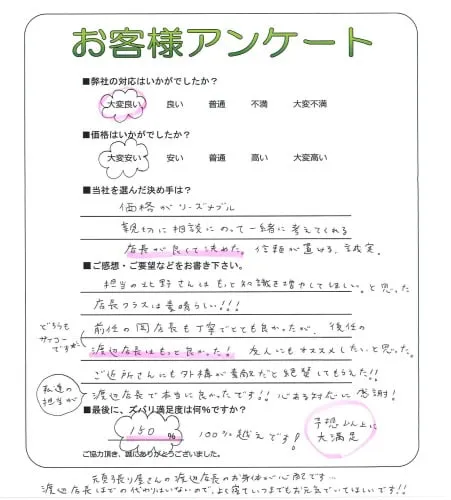 お客様アンケート
■弊社の対応はいかがでしたか？
大変良い 良い 普通 不満 大変不満
■価格はいかがでしたか？
大変安い 安い 普通 高い 大変高い
■当社を選んだ決め手は？
価格がリーズナブル
親切に相談にのって一緒に考えてくれる
店長が良くて決めた。信頼が置ける、誠実。
■ご感想・ご要望などをお書き下さい。
担当の北野さんはもっと知識を増やしてほしい。と思った
店長クラスは素晴らしい!!!
どちらも
サイコー
です
前任の岡店長も丁寧でとても良かったが、後任の
渡辺店長はもっと良かった! 友人にもオススメしたいと思った。
ご近所さんにも外構が素敵だと絶賛してもらえた!!
私達の
担当が
渡辺店長で本当に良かったです!! 心ある対応に感謝!
■最後に、ズバリ満足度は何%ですか？
150 %
100%越えです!
予想以上に
大満足
ご協力頂き、誠にありがとうございました。
頑張り屋さんの渡辺店長のお身体が心配です…
渡辺店長ほどの代わりはいないので、よく寝ていつまでもお元気でいてほしいです!!